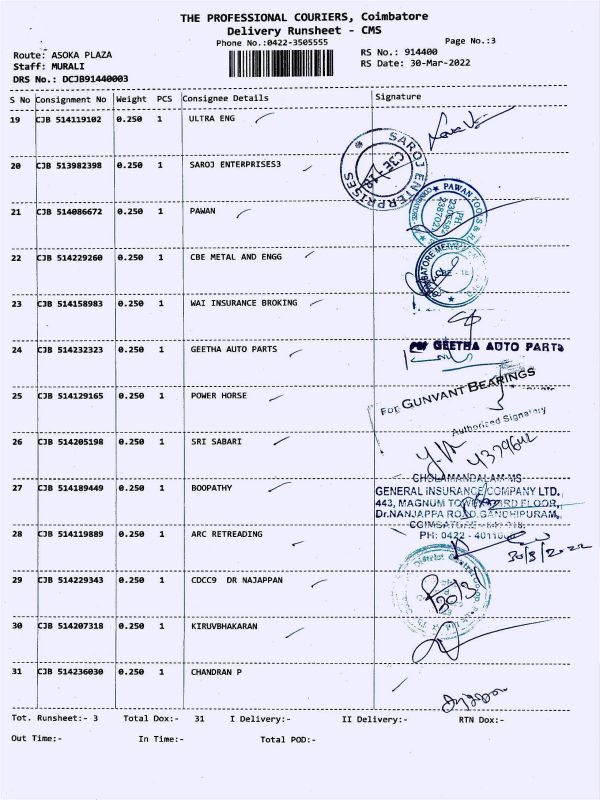 THE PROFESSIONAL COURIERS, Coimbatore
Delivery Runsheet - CMS
Phone No.:0422-3505555
Page No.:3
Route: ASOKA PLAZA
RS No.: 914400
Staff: MURALI
RS Date: 30-Mar-2022
DRS No.: DCJB91440003
S No Consignment No Weight PCS Consignee Details Signature
19 CJB 514119102 0.250 1 ULTRA ENG
20 CJB 513982398 0.250 1 SAROJ ENTERPRISES3
SAROJ ENTERPRISES
21 CJB 514086672 0.250 1 PAWAN
PAWAN TOOLS &
22 CJB 514229260 0.250 1 CBE METAL AND ENGG
23 CJB 514158983 0.250 1 WAI INSURANCE BROKING
24 CJB 514232323 0.250 1 GEETHA AUTO PARTS
For GEETHA AUTO PARTS
25 CJB 514129165 0.250 1 POWER HORSE
FOR GUNVANT BEARINGS
Authorised Signatory
26 CJB 514205198 0.250 1 SRI SABARI
27 CJB 514189449 0.250 1 BOOPATHY
CHOLAMANDALAM-MS
GENERAL INSURANCE COMPANY LTD.,
443, MAGNUM TOWER, 3RD FLOOR,
Dr.NANJAPPA ROAD, GANDHIPURAM,
28 CJB 514119889 0.250 1 ARC RETREADING
30/3/2022
29 CJB 514229343 0.250 1 CDCC9 DR NAJAPPAN
30/3
30 CJB 514207318 0.250 1 KIRUVBHAKARAN
31 CJB 514236030 0.250 1 CHANDRAN P
Tot. Runsheet:- 3 Total Dox:- 31 I Delivery:- II Delivery:- RTN Dox:-
Out Time:- In Time:- Total POD:-